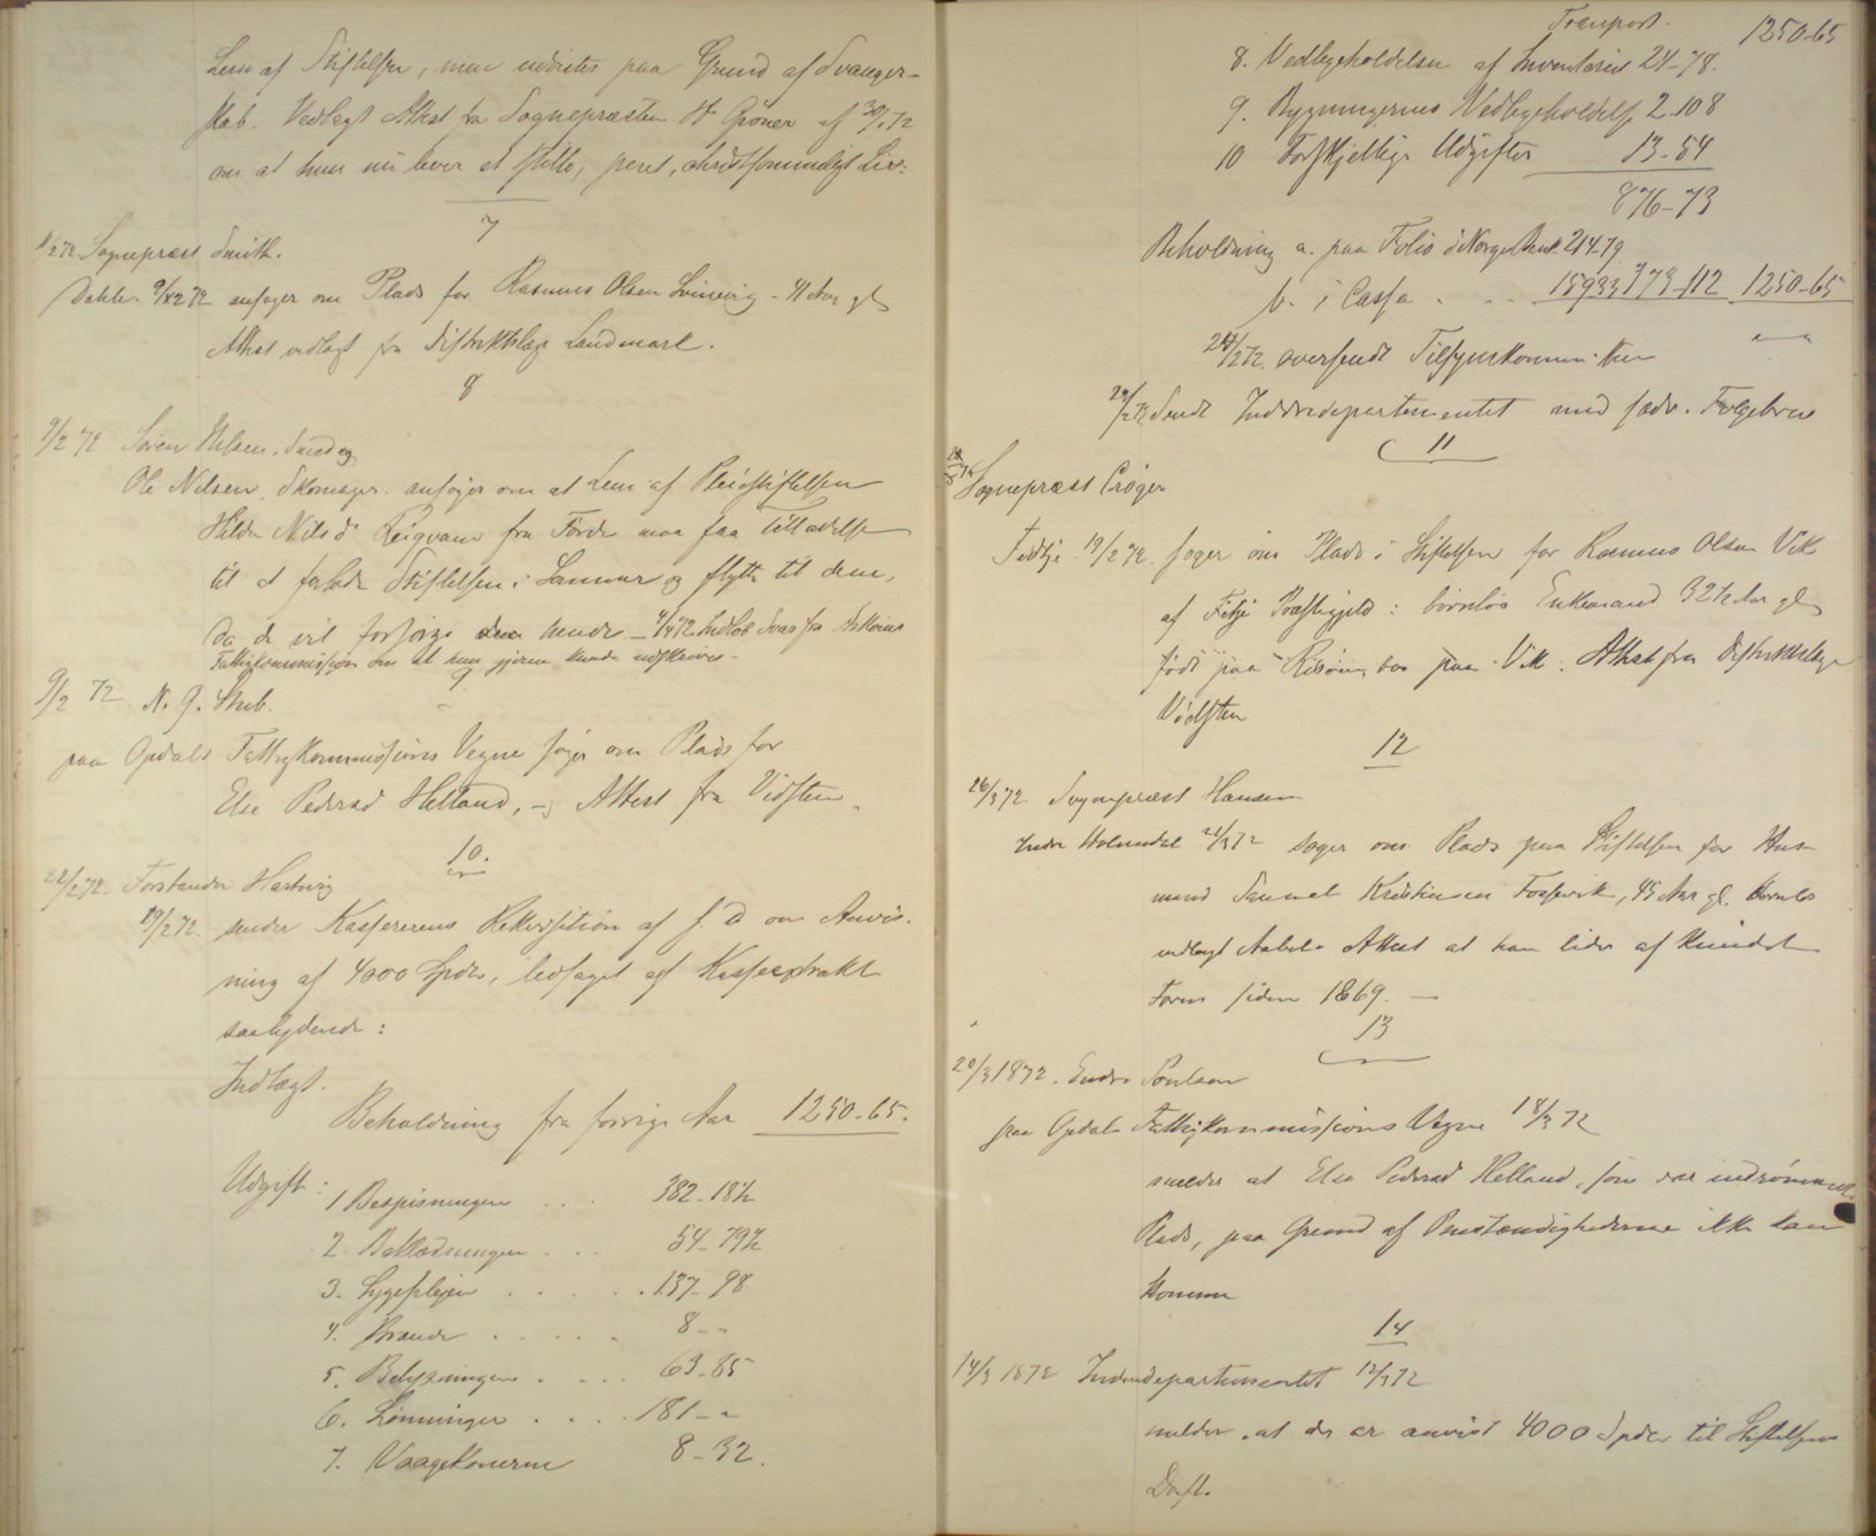 Lem af Stiftelsen, men udvistes paa Grund af Svanger-
skab. Vedlagt Attest fra Sognepræsten H Grøner af 30/1 72
om at hun nu lever et stille, pent, christsømmeligt Liv.
7
Sognepræst Smith.
Dahle 9/2 72 ansøger om Plads for Rasmus Olsen 41 Aar gl
Attest vedlagt fra Distriktslæge Landmark.
8
9/2 72 Søren Nilsen, Smed og
Ole Nilsen, Skomager. ansøger om at Lem af Pleiestiftelsen
Hilda Nilsd fra Førde maa faa Tilladelse
til at forlade Stiftelsen i Sommer og flytte til dem,
da de vil forsørge hende - Indløb Svar fra Askvolds
Fattigkommission om at hun gjerne kunde udskrives -
9
9/2 72 N. J. Skub.
paa Opdals Fattigkommissions Vegne søger om Plads for
Else Pedersd Helland, - Attest fra Vidsteen.
10.
22/2 72. Forstander Hartwig
19/2 72. sender Kassererens Rekvisition af s. D om Anvis-
ning af 4000 Spdlr, ledsaget af Kasseextrakt
saalydende:
Indtægt.
Beholdning fra forrige Aar 1250-65.
Udgift: 1 Bespisningen . . . 382-18½
2. Beklædningen . . . 54-79½
3. Sygepleien . . . . . 137-98
4. Brænde . . . . . 8 - "
5. Belysningen . . . . 63-85
6. Lønninger . . . . 181 - "
7. Vaagekonerne 8-32.
Transport. 1250-65
8. Vedligeholdelsen af Inventariet 24-78.
9. Bygningernes Vedligeholdelse 2-108
10 Forskjellige Udgifter 13-54
876-73
Beholdning a. paa Folio i Norges Bank 214-79
b. i Cassa . . . 373-112 1250-65
24/2 72. oversendt Tilsynskommiteen
29/2 72 Sendt Indredepartementet med sædv. Følgebrev
11
Sognepræst Crøger
Fitje 19/2 72. søger om Plads i Stiftelsen for Rasmus Olsen Vik
af Fitje Præstegjeld: børnløs Enkemand 32½ Aar gl
født paa Risøen, bor paa Vik. Attest fra Distriktslæge
Vidsteen
12
26/3 72. Sognepræst Hansen
Indre Holmedal 21/3 72 søger om Plads paa Stiftelsen for Hus-
mand Samuel Kristiansen Fossevik, 45 Aar gl. Børnløs
vedlagt Attest at han lider af
Form siden 1869. -
13
20/3 1872. Endre Poulsen
paa Opdals Fattigkommissions Vegne 18/3 72
melder at Else Pedersd Helland, som var indrømmet
Plads, paa Grund af Omstændighederne ikke kan
komme
14
14/3 1872 Indredepartementet 12/3 72
melder, at der er anvist 4000 Spdlr til Stiftelsens
Drift.